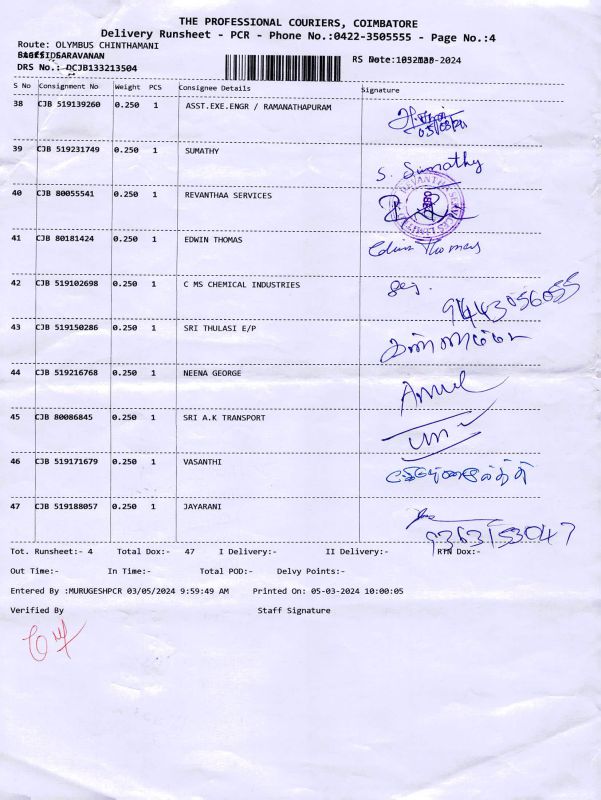 THE PROFESSIONAL COURIERS, COIMBATORE
Delivery Runsheet - PCR - Phone No.:0422-3505555 - Page No.:4
Route: OLYMBUS CHINTHAMANI
SARAVANAN
DRS No.: DCJB133213504
S No Consignment No Weight PCS Consignee Details Signature
38 CJB 519139260 0.250 1 ASST.EXE.ENGR / RAMANATHAPURAM
39 CJB 519231749 0.250 1 SUMATHY S. Sumathy
40 CJB 80055541 0.250 1 REVANTHAA SERVICES
41 CJB 80181424 0.250 1 EDWIN THOMAS Edwin Thomas
42 CJB 519102698 0.250 1 C MS CHEMICAL INDUSTRIES 94443056055
43 CJB 519150286 0.250 1 SRI THULASI E/P
44 CJB 519216768 0.250 1 NEENA GEORGE
45 CJB 80086845 0.250 1 SRI A.K TRANSPORT
46 CJB 519171679 0.250 1 VASANTHI
47 CJB 519188057 0.250 1 JAYARANI 9363153047
Tot. Runsheet:- 4 Total Dox:- 47 I Delivery:- II Delivery:- RTN Dox:-
Out Time:- In Time:- Total POD:- Delvy Points:-
Entered By :MURUGESHPCR 03/05/2024 9:59:49 AM Printed On: 05-03-2024 10:00:05
Verified By Staff Signature